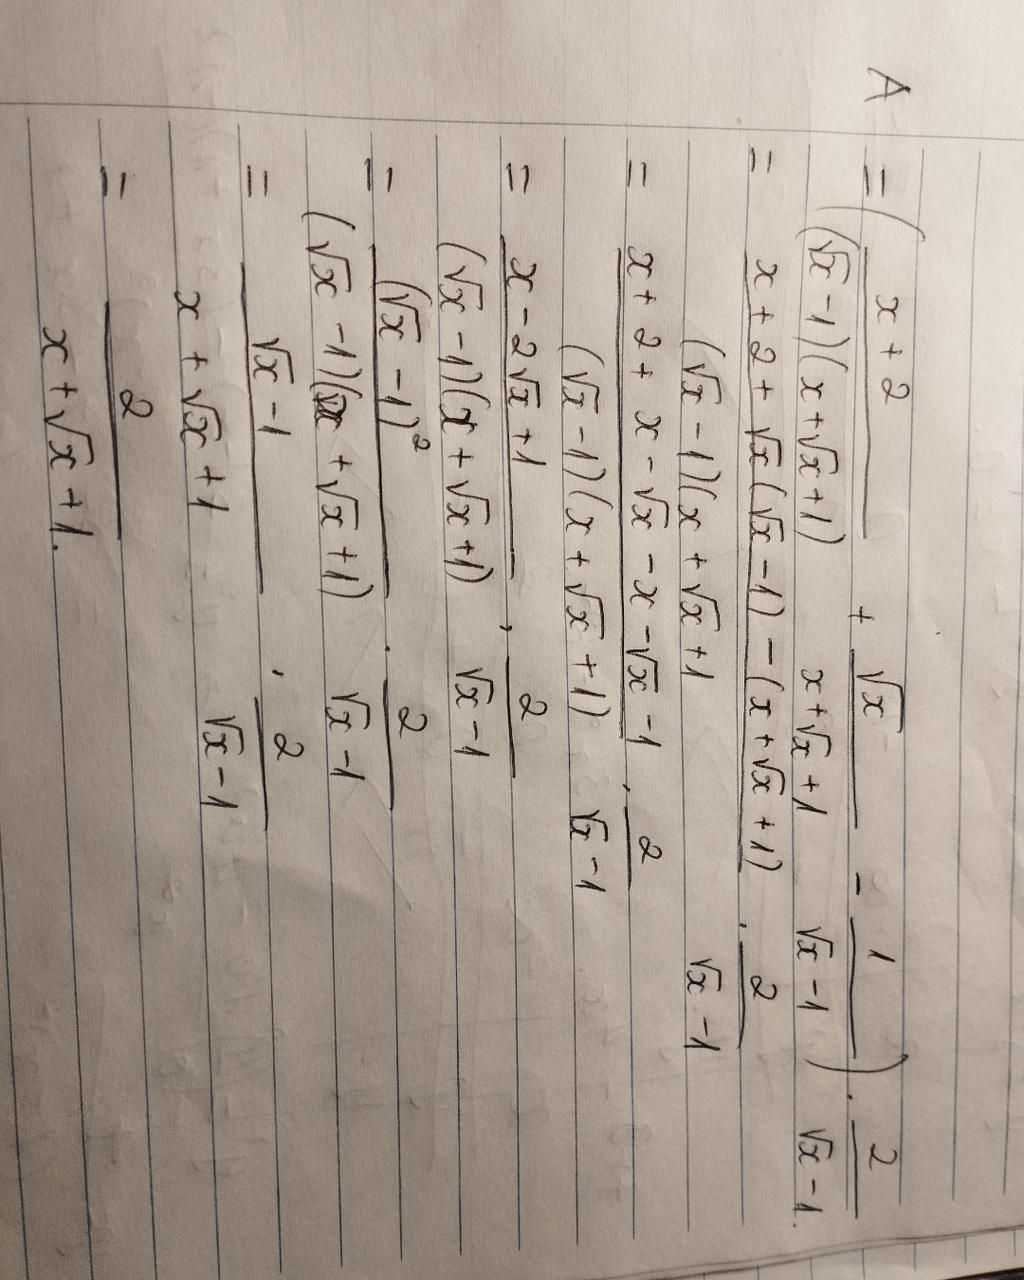 A = ( (x + 2)/((√x - 1)(x + √x + 1)) + √x/(x + √x + 1) - 1/(√x - 1) ) . 2/(√x - 1).
= (x + 2 + √x(√x - 1) - (x + √x + 1))/((√x - 1)(x + √x + 1) . 2/(√x - 1)
= (x + 2 + x - √x - x - √x - 1)/((√x - 1)(x + √x + 1)) . 2/(√x - 1)
= (x - 2√x + 1)/((√x - 1)(x + √x + 1)) . 2/(√x - 1)
= (√x - 1)²/((√x - 1)(x + √x + 1)) . 2/(√x - 1)
= (√x - 1)/(x + √x + 1) . 2/(√x - 1)
= 2/(x + √x + 1).